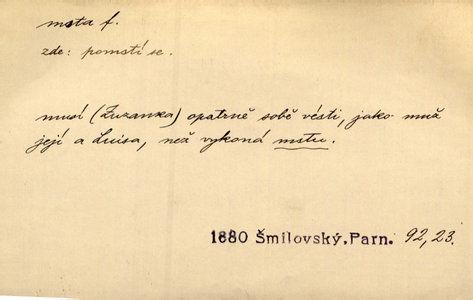 msta f.
zde: pomstí se.
musí (Zuzanka) opatrně sobě vésti, jako muž
její a Luisa, než vykoná mstu.
1880 Šmilovský, Parn. 92, 23.